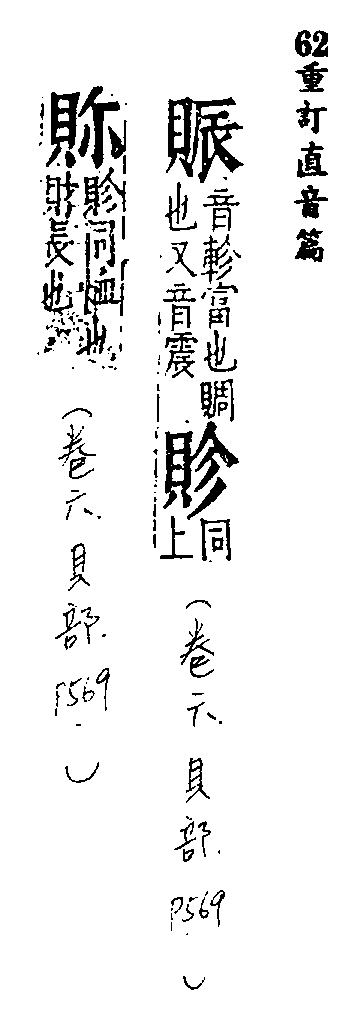 62重訂直音篇
賑音軫富也賙也又音震賑同上
(卷六.貝部.P569.)
財長也
(卷六.貝部.P569.)